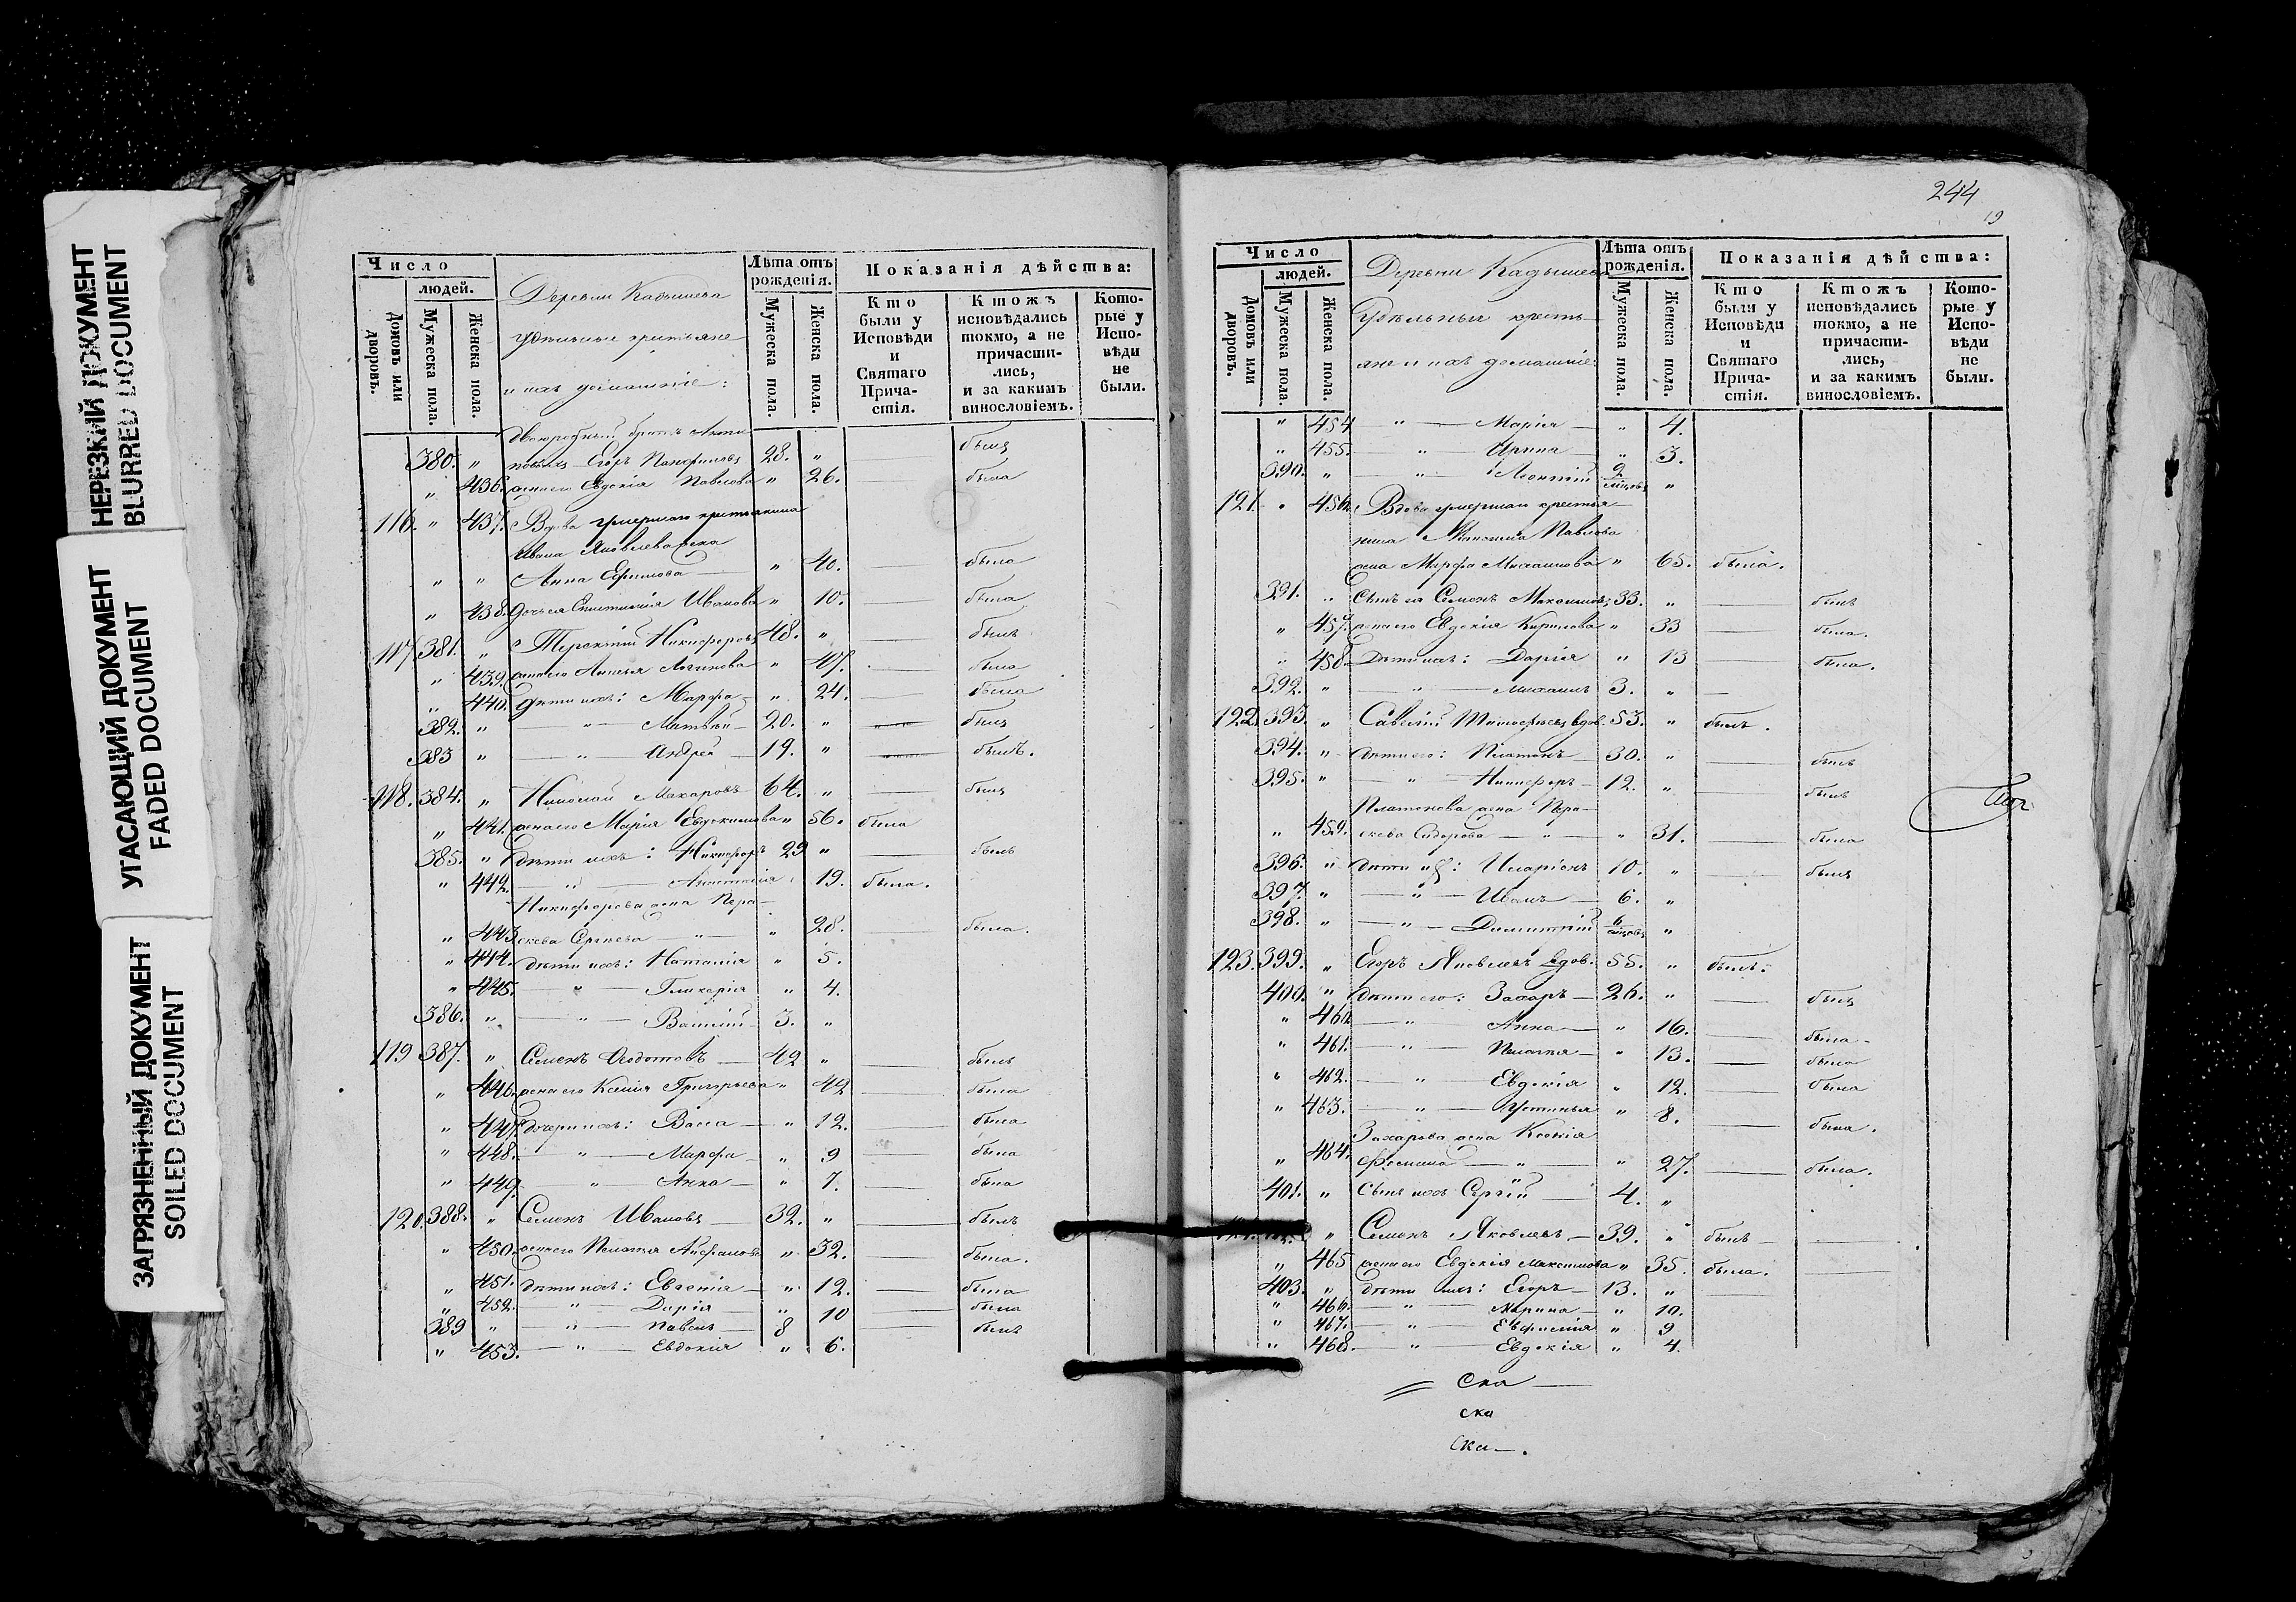 НЕРЕЗКИЙ ДОКУМЕНТ
BLURRED DOCUMENT
УГАСАЮЩИЙ ДОКУМЕНТ
FADED DOCUMENT
ЗАГРЯЗНЕННЫЙ ДОКУМЕНТ
SOILED DOCUMENT
Число
людей.
Домовъ или дворовъ.
Мужеска пола.
Женска пола.
Деревни Кадышева
удѣльныи крестьяне
и ихъ домашніе:
Лѣта отъ рожденія.
Мужеска пола.
Женска пола.
Показанія дѣйства:
Кто были у Исповѣди и Святаго Причастія.
Ктожъ исповѣдались токмо, а не причастились, и за какимъ винословіемъ.
Которые у Исповѣди не были.
двоюродный братъ
380. " Егоръ Панфиловъ 28. " былъ
" 436. жена его Евдокія Павлова " 26. была
116. " 437. Вдова умершаго крестьянина
Ивана Яковлева жена
" " Анна Ефимова " 40. была
" 438. дочь ея Иванова " 10. была
117. 381. " Терентій Никифоровъ 48. " былъ
" 439. жена его Логинова " 47. была
" 440. дѣти ихъ: Марфа " 24. была
382. " " Матвѣй 20. " былъ
383 " " Андрей 19. " былъ.
118. 384. " Николай Макаровъ 64. " былъ
" 441. жена его Марія Евдокимова " 56. была
385. " дѣти ихъ: Никифоръ 29 " былъ
" 442. " Анастасія 19. была.
Никифорова жена Пара-
" 443 скева Сергѣева " " 28. была.
" 444. дѣти ихъ: Наталія " 5.
" 445. " Гликерія " 4.
386. " " Василій 3. "
119 387. " Семенъ Ѳедотовъ 42 " былъ
" 446. жена его Ксенія Григорьева " 42 была
" 447. дочери ихъ: Васса " 12. была
" 448. " Марфа " 9 была
" 449. " Анна " 7. была
120. 388. " Семенъ Ивановъ 32. " былъ
" 450. жена его Пелагея " 32. была.
" 451. дѣти ихъ: Евгенія " 12. была
" 452. " Дарія " 10 была
389 " " Павелъ 8 былъ
" 453. " Евдокія " 6.
244
19
Число
людей.
Домовъ или дворовъ.
Мужеска пола.
Женска пола.
Деревни Кадышева
Удѣльныи кресть-
яне и ихъ домашніе:
Лѣта отъ рожденія.
Мужеска пола.
Женска пола.
Показанія дѣйства:
Кто были у Исповѣди и Святаго Причастія.
Ктожъ исповѣдались токмо, а не причастились, и за какимъ винословіемъ.
Которые у Исповѣди не были.
" 454 " Марія " 4.
" 455. " Ирина " 3.
390. " " Леонтій 2 "
121. " 456. Вдова умершаго крестья-
нина Максима Павлова
жена Марфа Михайлова " 65. была.
391. " Сынъ ея Семенъ Максимовъ 33. " былъ
" 457. жена его Евдокія Кирилова " 33 была.
" 458. Дѣти ихъ: Дарія " 13 была.
392. " " Михаилъ 3. "
122. 393. " Савелій Тимофѣевъ вдов. 53. " былъ.
394. " дѣти его: Платонъ 30. " былъ
395. " " Никифоръ 12. " былъ
Платонова жена Пара-
" 459. скева Сидорова " " 31. была
396. " дѣти их: Иларіонъ 10. " былъ
397. " " Иванъ 6. "
398. " " Димитрій 6 "
123. 399. " Егоръ Яковлевъ вдов. 55. " былъ.
400. " дѣти его: Захаръ 26. " былъ
" 460. " Анна " 16. была
" 461. " Пелагея " 13. была
" 462. " Евдокія " 12. была
" 463. " Устинья " 8. была.
Захарова жена Ксенія
" 464. Фомина " " 27. была.
401. " Сынъ ихъ Сергій 4. "
" Семенъ Яковлевъ 39. " былъ
" 465 жена его Евдокія Максимова " 35. была.
403. " дѣти ихъ: Егоръ 13. "
" 466. " Марина " 10.
" 467. " Евфимія " 9
" 468. " Евдокія " 4.
Ска
ска
ска